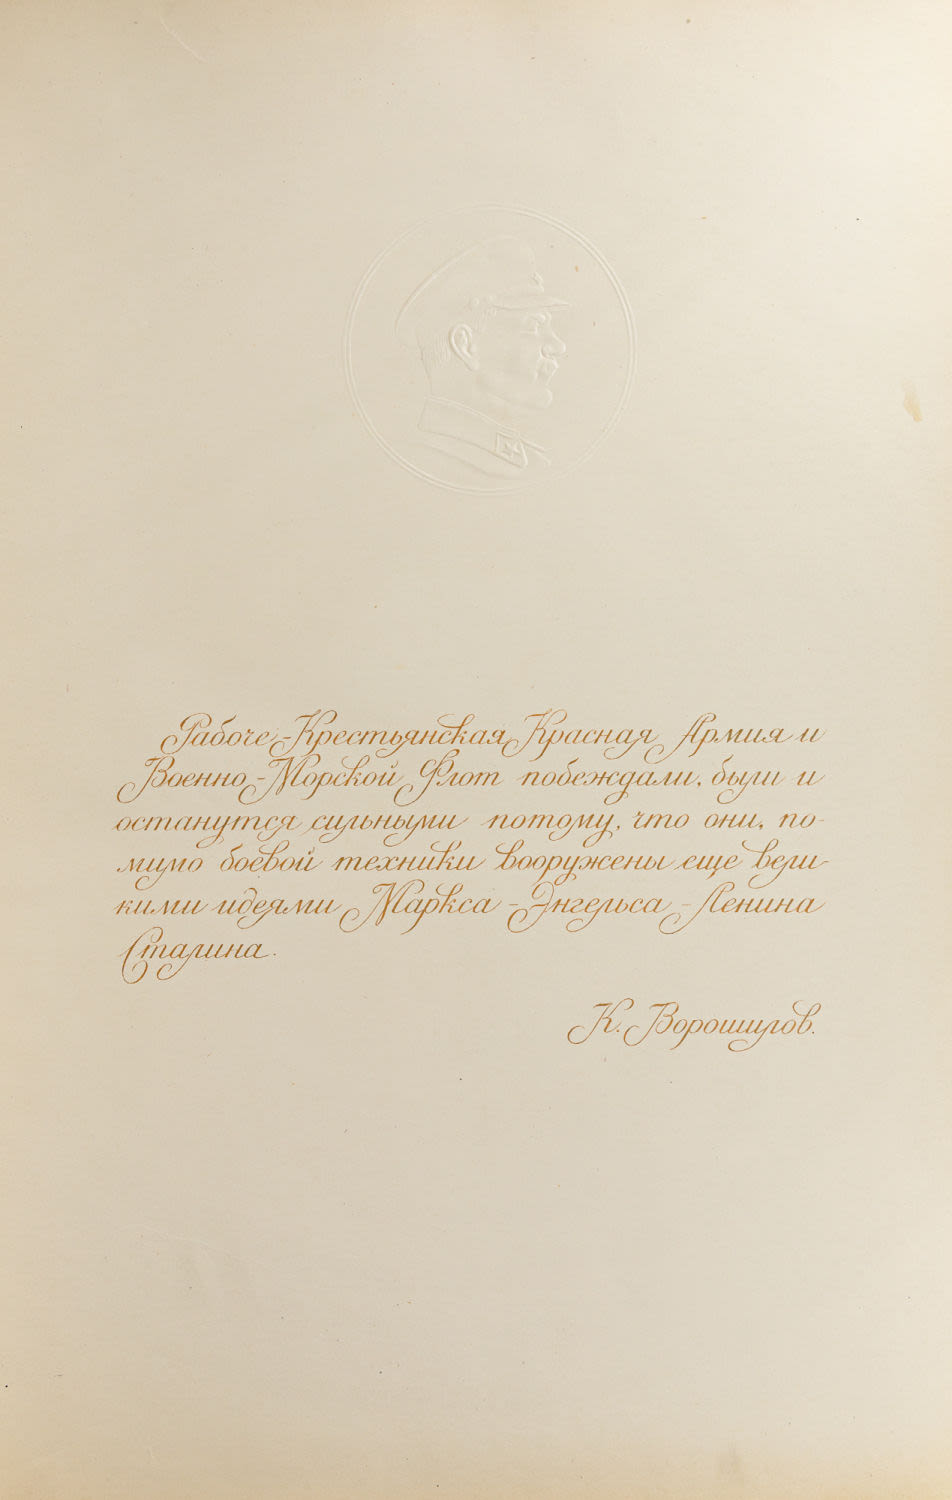 Рабоче-Крестьянская Красная Армия и
Военно-Морской Флот побеждали, были и
останутся сильными потому, что они, по-
мимо боевой техники вооружены еще вели-
кими идеями Маркса-Энгельса-Ленина
Сталина.
К. Ворошилов.